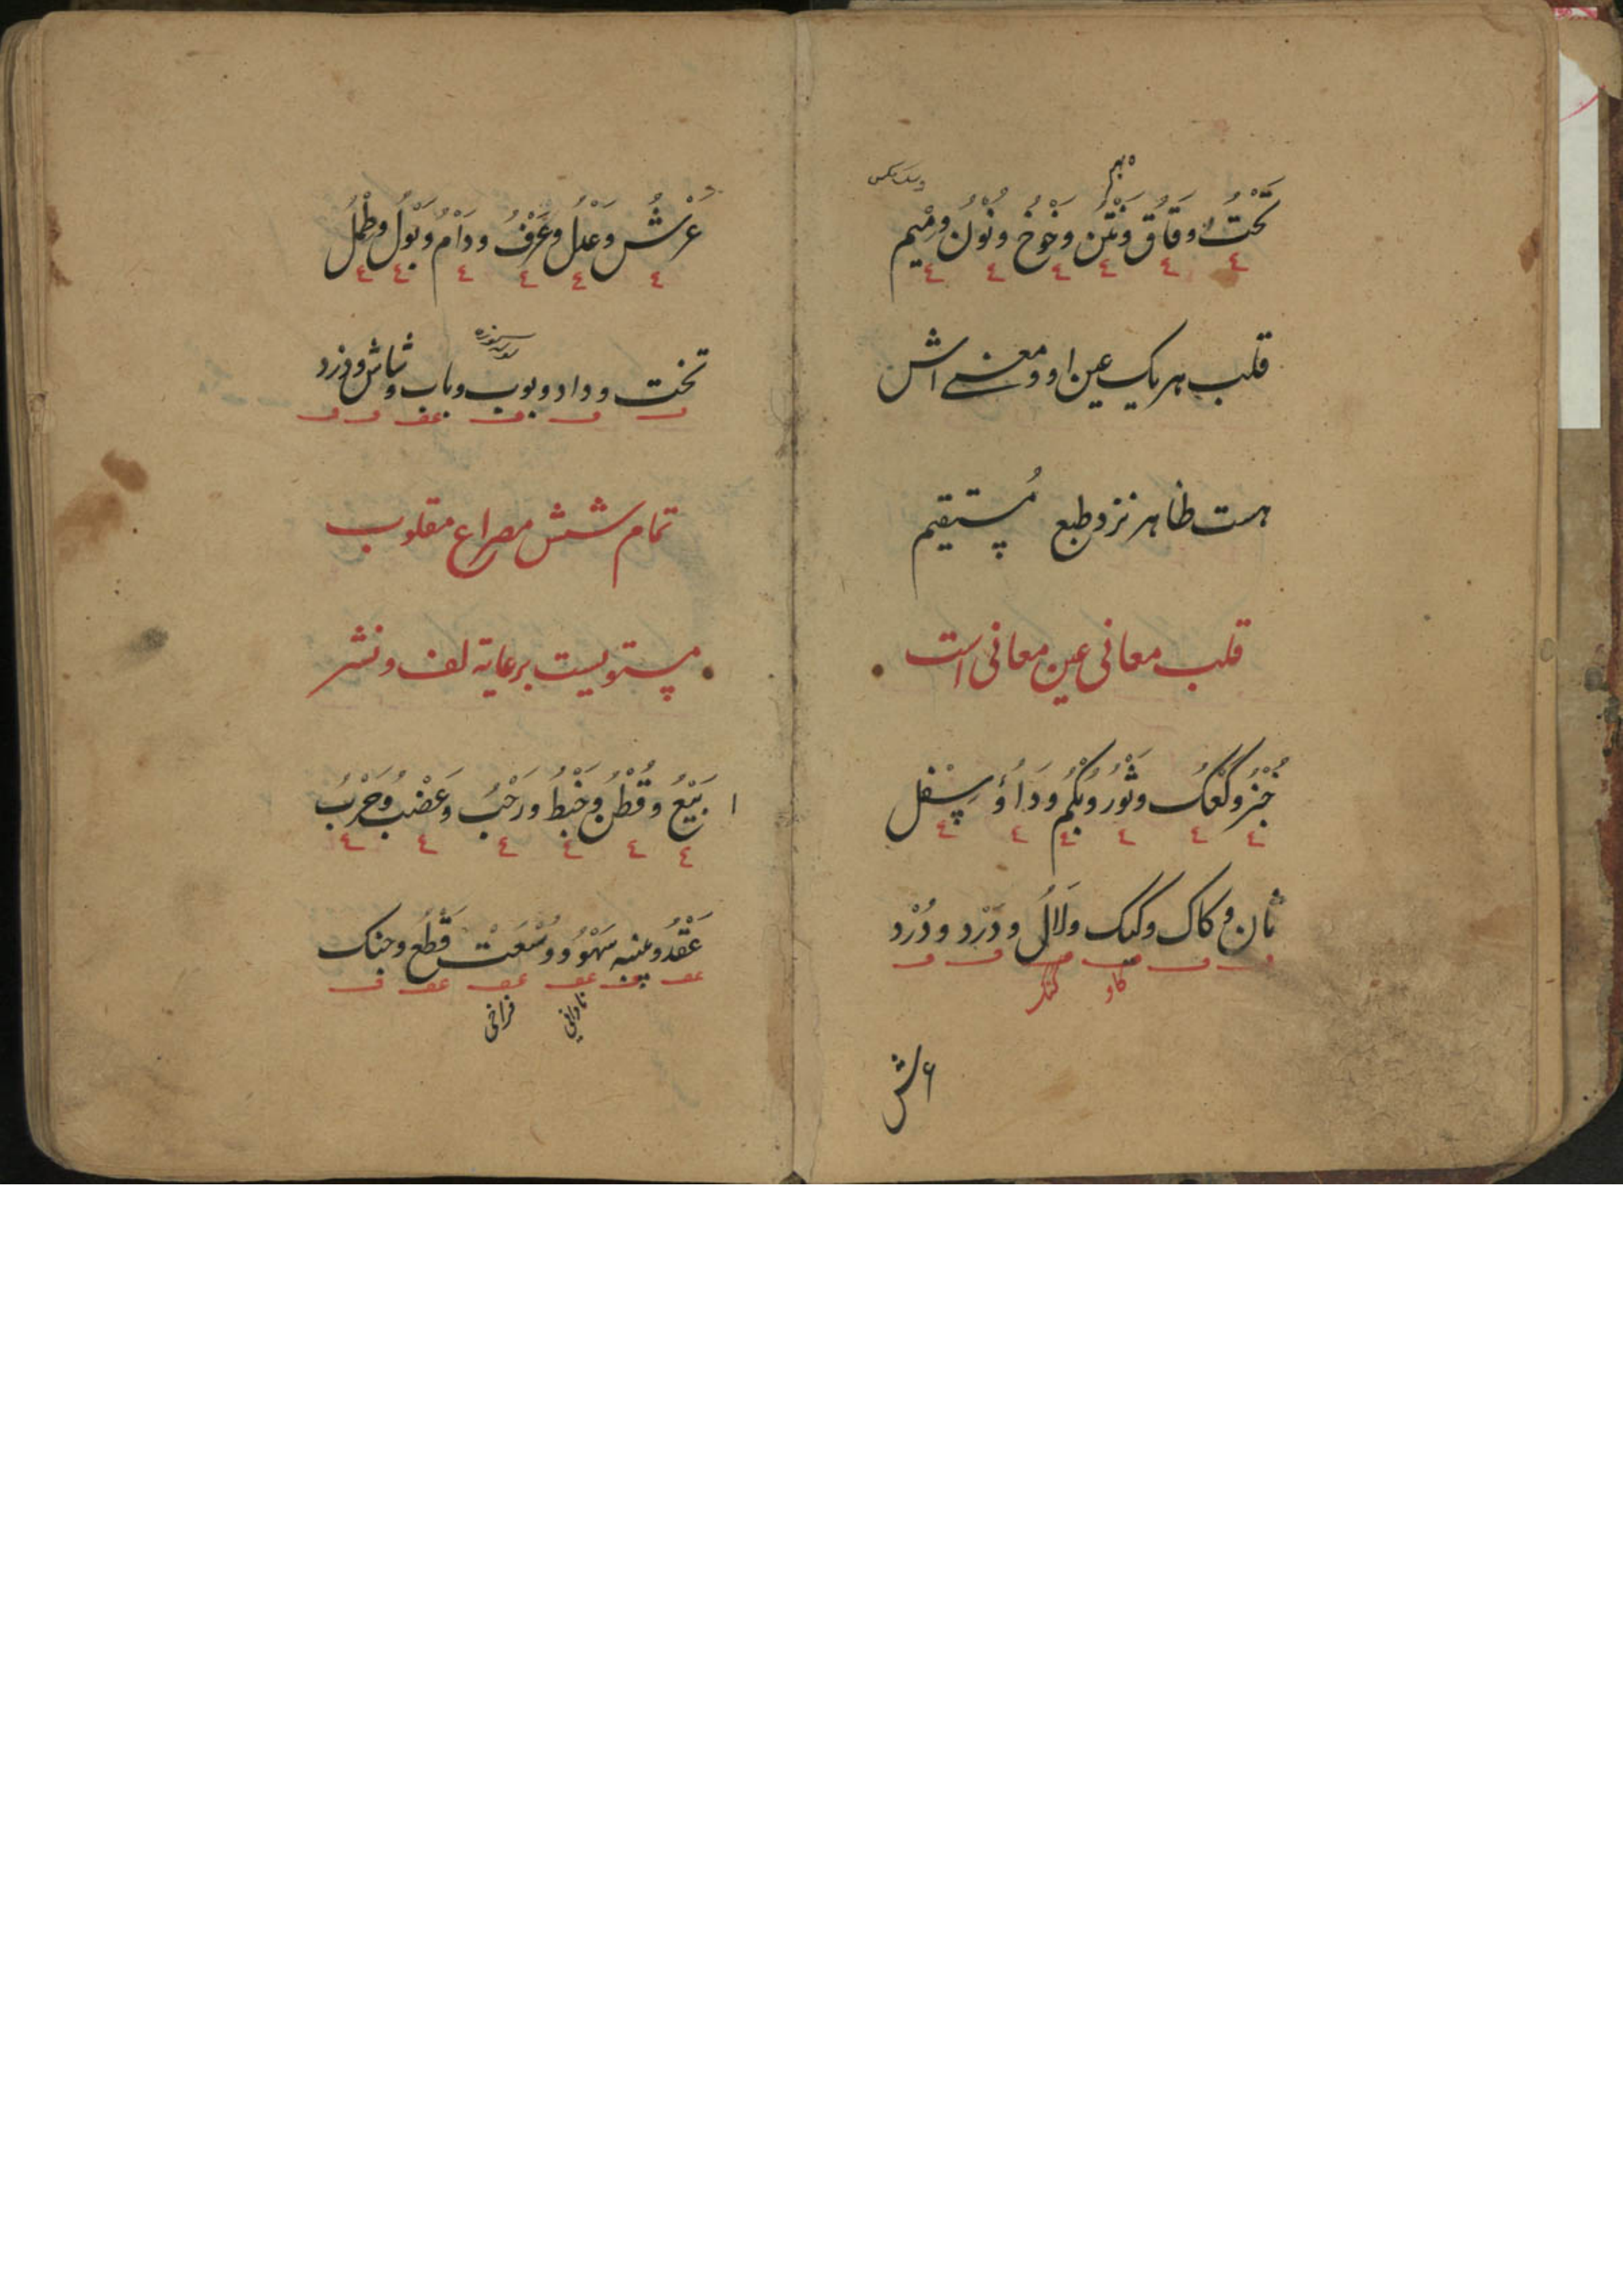 تَحْتُ وقَاقُ ونَتْنُ وخَوْخُ ونُوْنُ ومِيْم
قلب هر یک عین او و معنی اش
هست ظاهر نزد طبع مُستقیم
قلب معانی عین معانی است
خُبْزُ وکَعْکُ وثَوْرُ وبُکْمُ ودَاؤُ سِفْل
نان و کاک وکیک ولالُ ودَرْد ودُرْد
کاو
کنک
عرش
عَرْشُ وعَدْلُ وعَرْفُ ودَامُ وبَوْلُ وطْمْلُ
تخت وداد وبوب وباب وشاش ودزد
تمام شش مصراع مقلوب
مستویست برعایة لف ونشر
بَیْعُ وقُطْنُ وخَبْطُ ورَحْبُ وعَضْبُ وحَرْبُ
عَقْدُ وپنبه سَهْوُ ووُسْعَتْ قَطْع وجنک
نادانی
فراخی